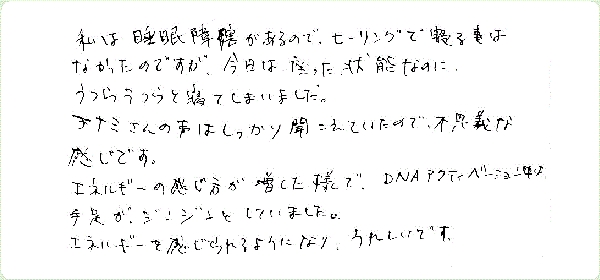 私は睡眠障害があるので、ヒーリングで寝る事は
なかったのですが、今日は、座った状態なのに、
うつらうつらと寝てしまいました。
ナミさんの声はしっかり聞こえていたので、不思議な
感じです。
エネルギーの感じ方が増した様で、DNAアクティベーション中は
手足が、ジンジンとしていました。
エネルギーを感じられるようになり、うれしいです。